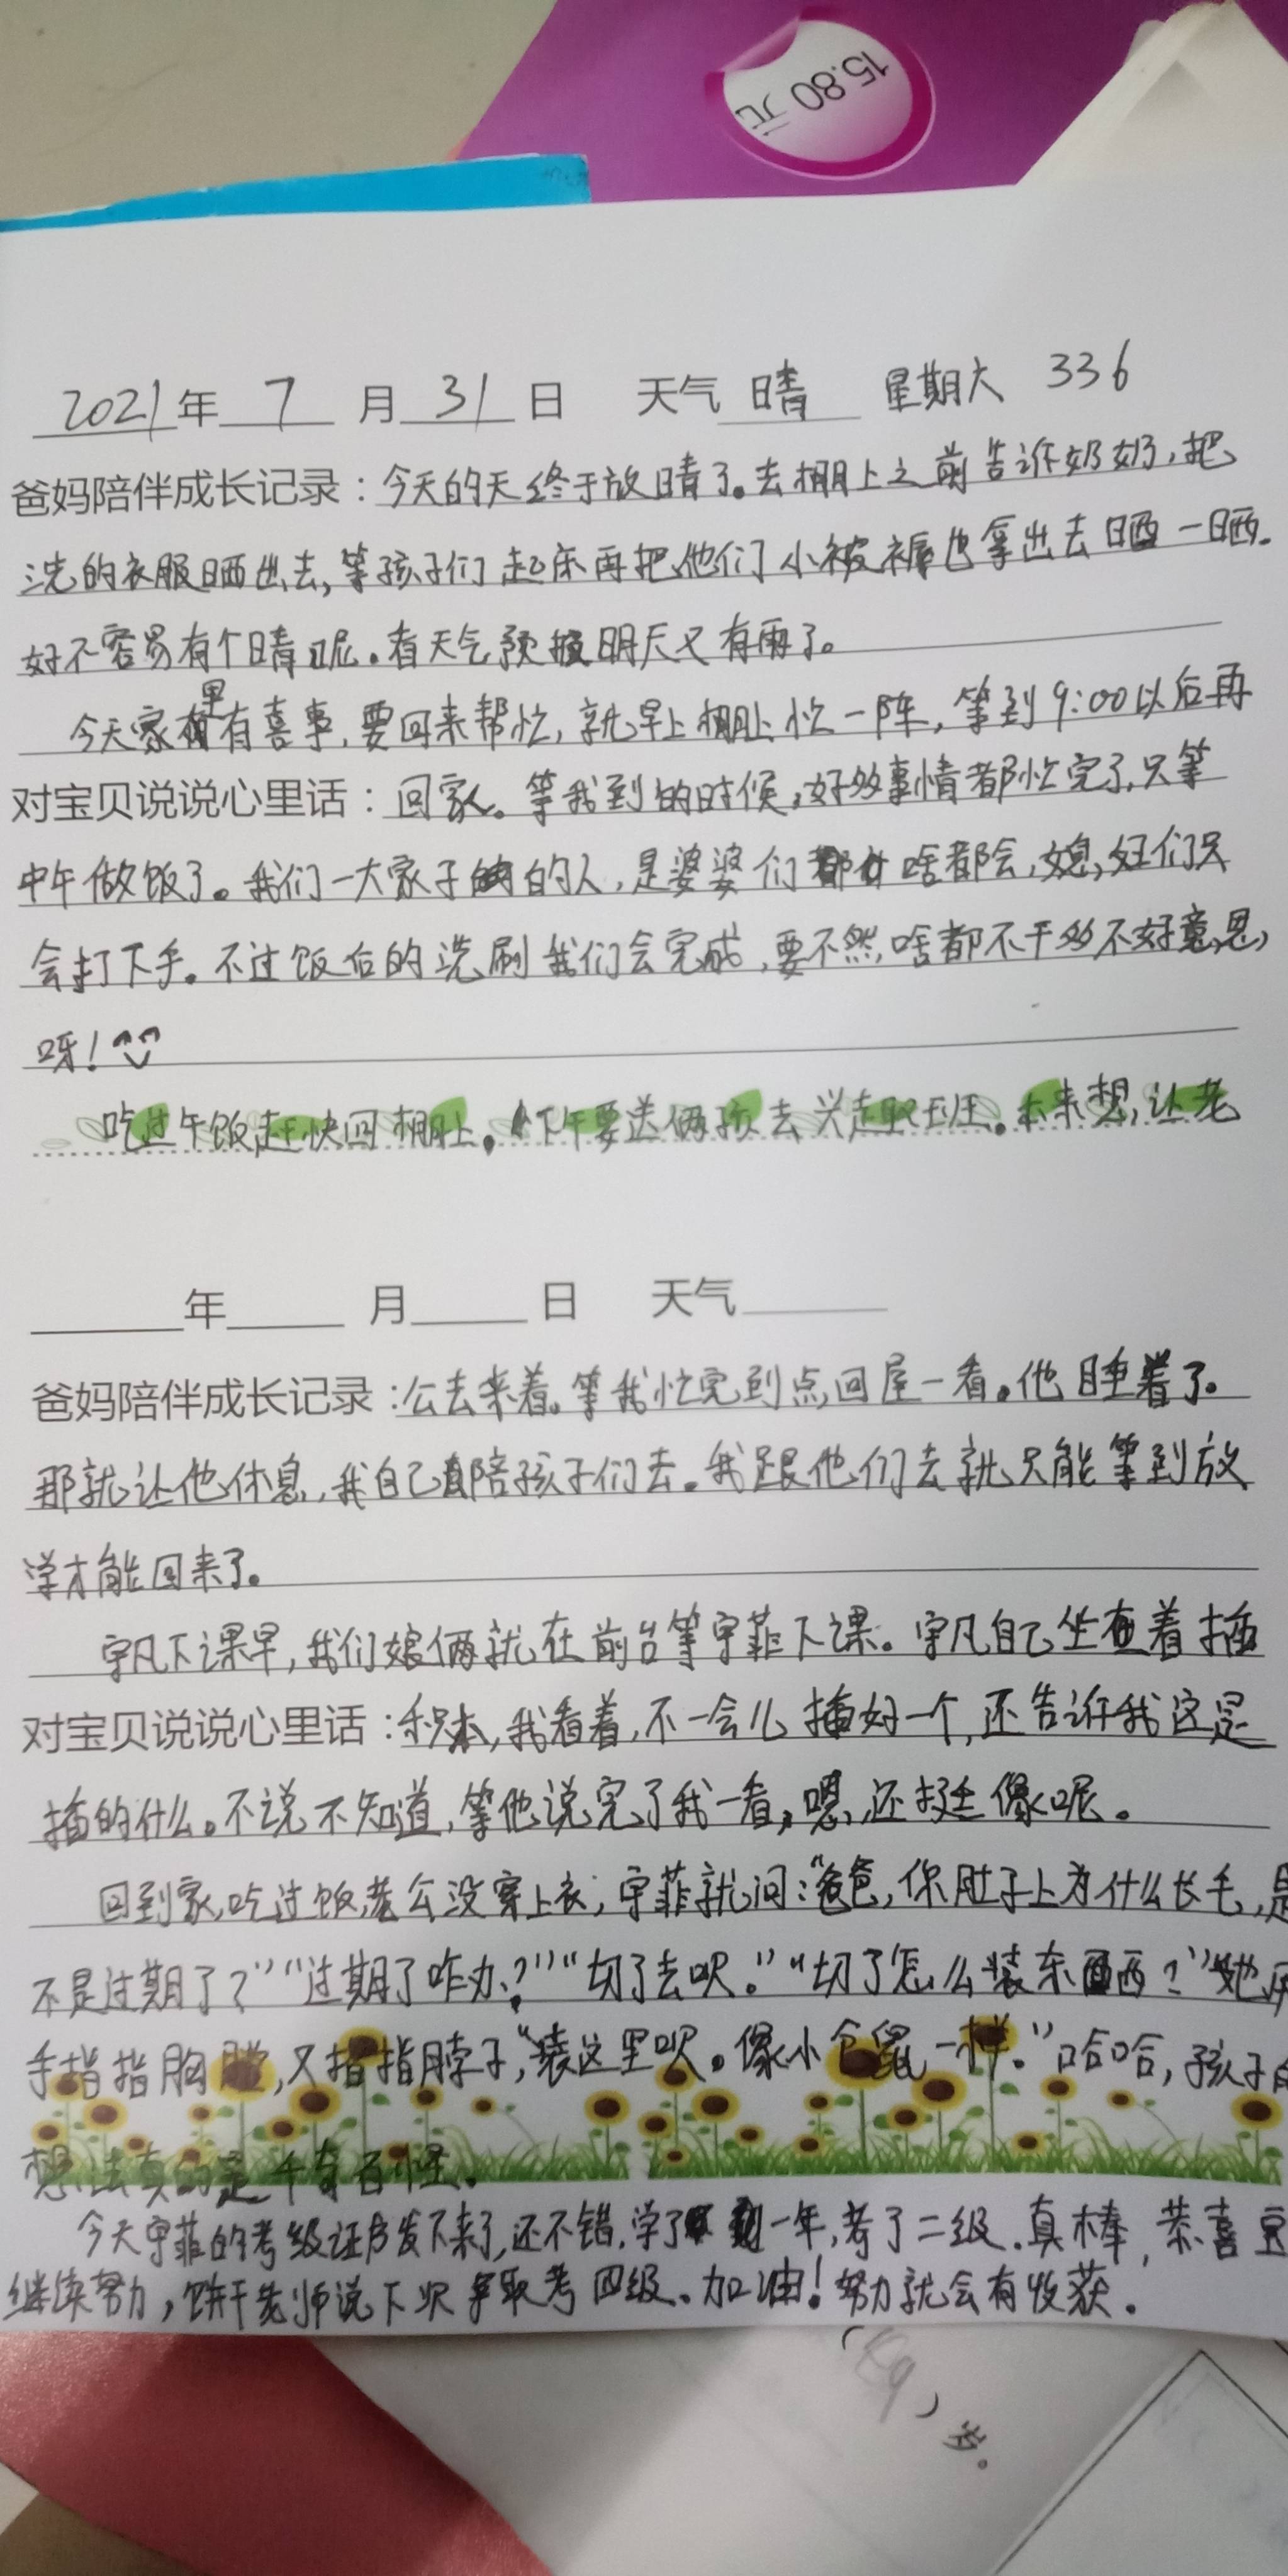 15.80 元
2021年 7 月 31 日 天气 晴 星期六 336
爸妈陪伴成长记录：今天的天终于放晴了。去棚上之前告诉奶奶，把
洗的衣服晒出去，等孩子们起床再把他们小被褥也拿出去晒一晒。
好不容易有个晴呢。看天气预报明天又有雨了。
今天家里有喜事，要回来帮忙，就早上棚上忙一阵，等到9:00以后再
对宝贝说说心里话：回家。等我到的时候，好多事情都忙完了，只等
中午做饭了。我们一大家子的人，是婆婆们啥都会，媳妇们只
会打下手。不过饭后的洗刷我们会完成，要不然啥都不干多不好意思
呀！
吃过午饭赶快回棚上。下午要送俩孩去兴趣班。本来想，让老
年 月 日 天气
爸妈陪伴成长记录：公去来着。等我忙完到点回屋一看。他睡着了。
那就让他休息，我自己陪孩子们去。我跟他们去就只能等到放
学才能回来了。
宇凡下课早，我们娘俩就在前台等宇菲下课。宇凡自己坐着插
对宝贝说说心里话：积木，我看着，不一会儿插好一个，还告诉我这是
插的什么。不说不知道，等他说完了我一看，嗯，还挺像呢。
回到家，吃过饭，老公没穿上衣，宇菲就问：“爸爸，你肚子上为什么长毛，是
不是过期了？”“过期了咋办？”“切了去呗。”“切了怎么装东西？”她用
手指指胸膛，又指指脖子，“装这里呗。像小仓鼠一样。”哈哈，孩子的
想法真的是千奇百怪。
今天宇菲的考级证书发下来了，还不错，学了一年，考了二级．真棒，恭喜
继续努力，饼干老师说下次争取考四级．加油！努力就会有收获．
岁。